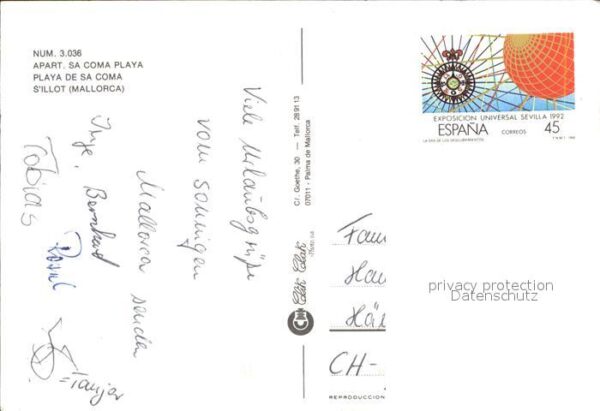 NUM. 3.036
APART. SA COMA PLAYA
PLAYA DE SA COMA
S'ILLOT (MALLORCA)
Viele Urlaubsgrüße
vom sonnigen
Mallorca senden
Inge, Bernhard
Tobias
Clik Clak
C/. Goethe, 30 — Telf. 28 91 13
07011 - Palma de Mallorca
EXPOSICION UNIVERSAL SEVILLA 1992
ESPAÑA CORREOS 45
LA ERA DE LOS DESCUBRIMIENTOS
Fam
Hau
Häl
CH-
privacy protection
Datenschutz
REPRODUCCION